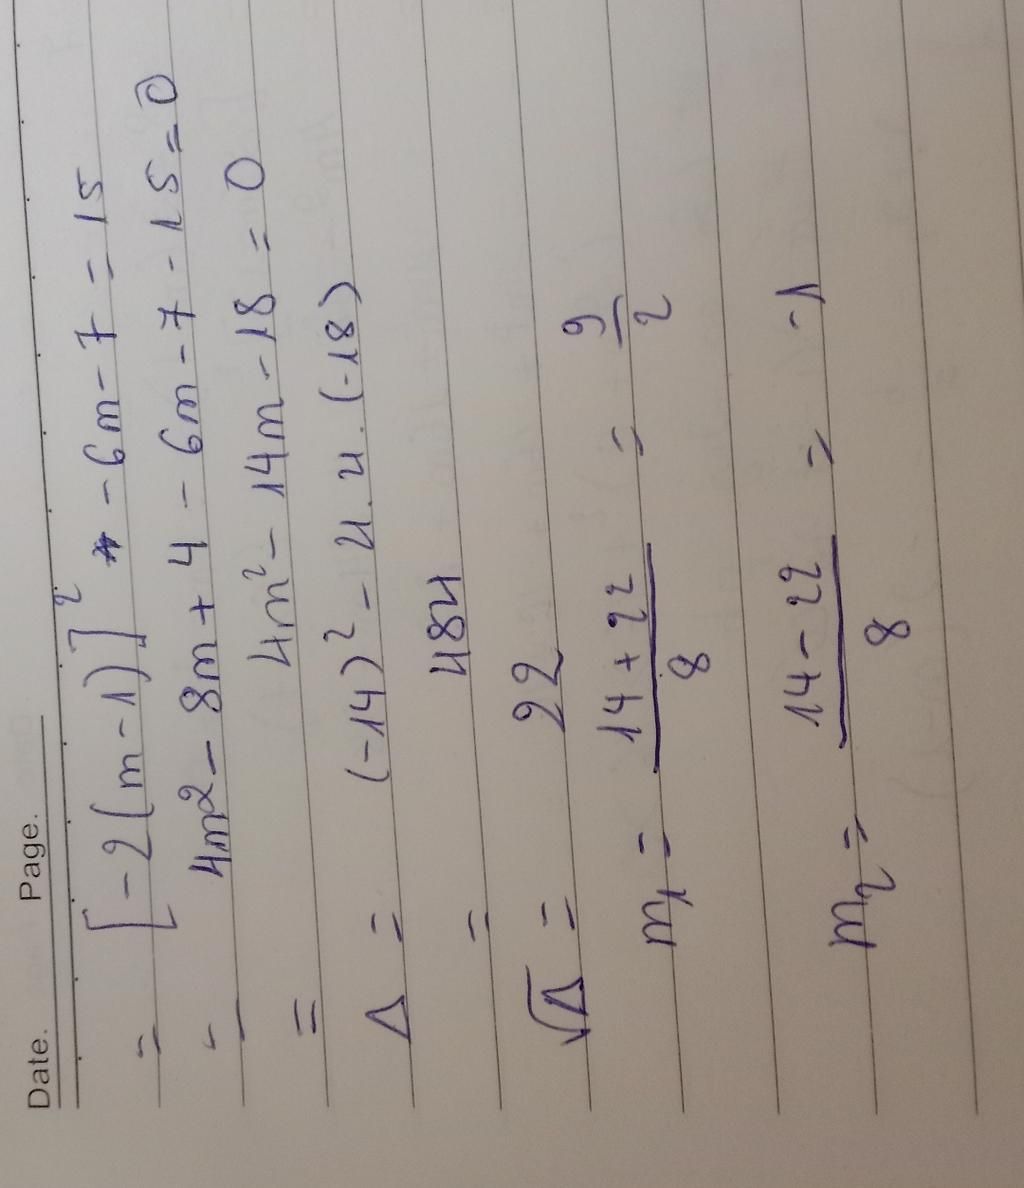 Date. Page.
= [-2(m-1)]² -6m-7=15
= 4m2-8m+4-6m-7-15=0
= 4m²-14m-18=0
Δ = (-14)²-4.4.(-18)
= 484
√Δ = 22
m₁ = (14+22)/8 = 9/2
m₂ = (14-22)/8 = -1